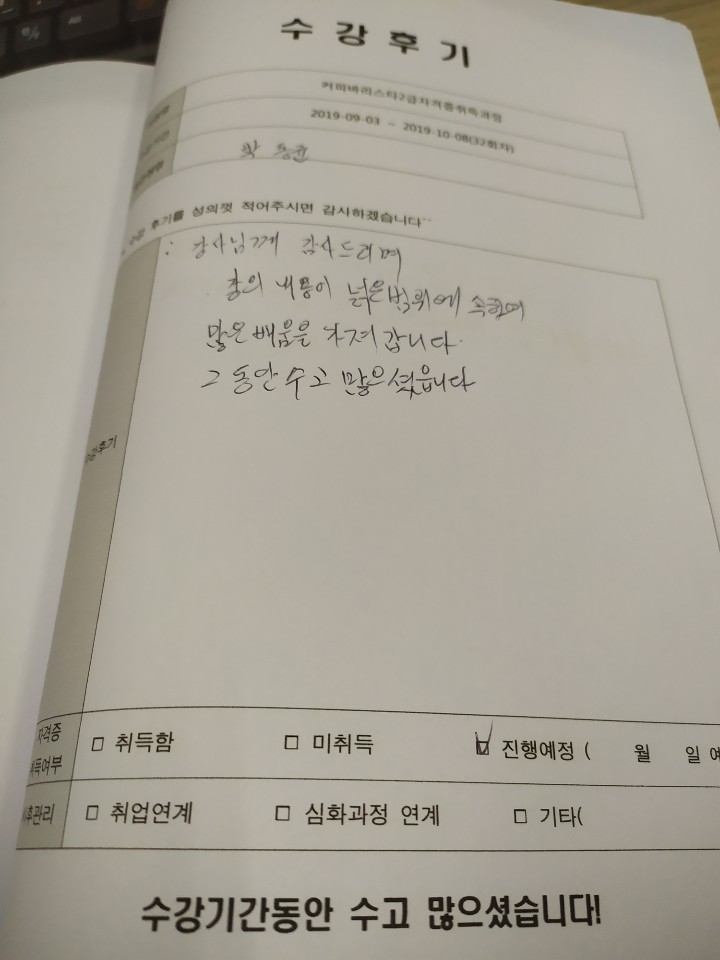 수강후기
커피바리스타2급자격증취득과정
2019-09-03 ~ 2019-10-08(32회차)
박
수강 후기를 성의껏 적어주시면 감사하겠습니다~
: 강사님께 감사드리며
강의 내용이 넓은 범위에 속하며
많은 배움을 가져 갑니다.
그 동안 수고 많으셨읍니다
수강후기
자격증
취득여부
□ 취득함 □ 미취득 ☑ 진행예정 ( 월 일
사후관리
□ 취업연계 □ 심화과정 연계 □ 기타(
수강기간동안 수고 많으셨습니다!